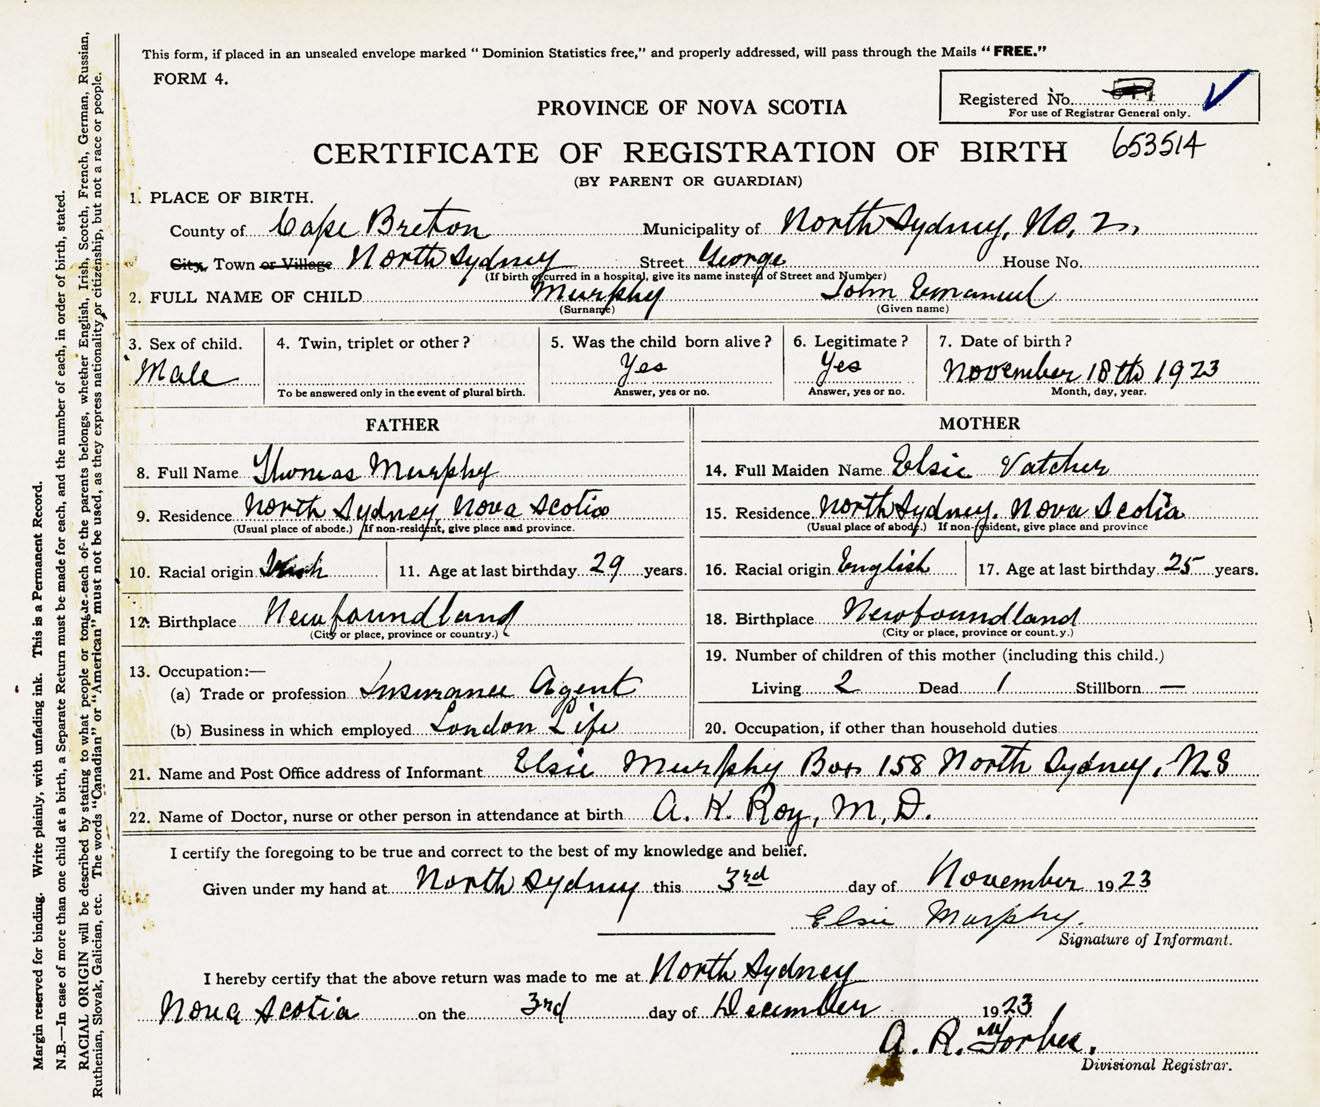 This form, if placed in an unsealed envelope marked "Dominion Statistics free," and properly addressed, will pass through the Mails "FREE."
FORM 4.
Registered No.
For use of Registrar General only.
PROVINCE OF NOVA SCOTIA
653514
CERTIFICATE OF REGISTRATION OF BIRTH
(BY PARENT OR GUARDIAN)
1. PLACE OF BIRTH.
County of Cape Breton Municipality of North Sydney, No. 2,
City, Town or Village North Sydney Street George House No.
(If birth occurred in a hospital, give its name instead of Street and Number)
2. FULL NAME OF CHILD Murphy John Emanuel
(Surname) (Given name)
3. Sex of child. 4. Twin, triplet or other? 5. Was the child born alive? 6. Legitimate? 7. Date of birth?
Male Yes Yes November 18th 1923
To be answered only in the event of plural birth. Answer, yes or no. Answer, yes or no. Month, day, year.
FATHER MOTHER
8. Full Name Thomas Murphy 14. Full Maiden Name Elsie Vatcher
9. Residence North Sydney, Nova Scotia 15. Residence North Sydney, Nova Scotia
(Usual place of abode.) If non-resident, give place and province. (Usual place of abode.) If non-resident, give place and province
10. Racial origin Irish 11. Age at last birthday 29 years. 16. Racial origin English 17. Age at last birthday 25 years.
12. Birthplace Newfoundland 18. Birthplace Newfoundland
(City or place, province or country.) (City or place, province or count.y.)
13. Occupation:— 19. Number of children of this mother (including this child.)
(a) Trade or profession Insurance Agent Living 2 Dead 1 Stillborn —
(b) Business in which employed London Life 20. Occupation, if other than household duties
21. Name and Post Office address of Informant Elsie Murphy Box 158 North Sydney, N.S
22. Name of Doctor, nurse or other person in attendance at birth A. K. Roy, M.D.
I certify the foregoing to be true and correct to the best of my knowledge and belief.
Given under my hand at North Sydney this 3rd day of November 1923
Elsie Murphy.
Signature of Informant.
I hereby certify that the above return was made to me at North Sydney
Nova Scotia on the 3rd day of December 1923
A. R. Forbes.
Divisional Registrar.
Margin reserved for binding. Write plainly, with unfading ink. This is a Permanent Record.
N.B.—In case of more than one child at a birth, a Separate Return must be made for each, and the number of each, in order of birth, stated.
RACIAL ORIGIN will be described by stating to what people or tongue each of the parents belongs, whether English, Irish, Scotch, French, German, Russian,
Ruthenian, Slovak, Galician, etc. The words "Canadian" or "American" must not be used, as they express nationality or citizenship, but not a race or people.